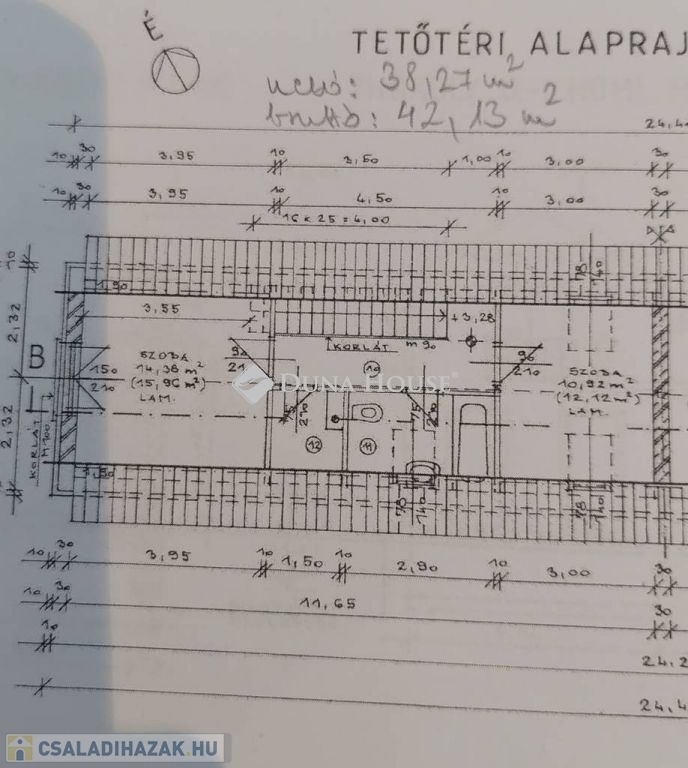 É
TETŐTÉRI ALAPRAJ
nettó: 38,27 m²
bruttó: 42,13 m²
24,4
10 30 3,95 10 3,50 1,00 10 3,00 30
10 30 3,95 10 4,50 10 3,00 30
16 x 25 = 4,00
10
2,32
2,32
1,90
3,55
+3,28
78
140
KORLÁT m 90
B
150
210
SZOBA
14,36 m²
(15,96 m²)
LAM.
90
210
10
90
210
SZOBA
10,92 m²
(12,12 m²)
LAM.
DUNA HOUSE
75
210
75
210
12
11
KORLÁT
M 100
1,50
78
140
78
140
10 30 3,95 10 1,50 10 2,90 10 3,00 30
10 30 11,65 30
10 24,2
24,4
CSALADIHAZAK.HU